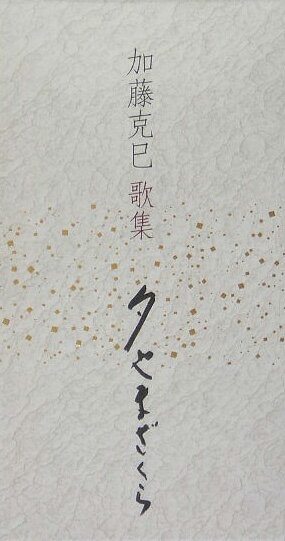 加藤克巳 歌集
夕やまざくら